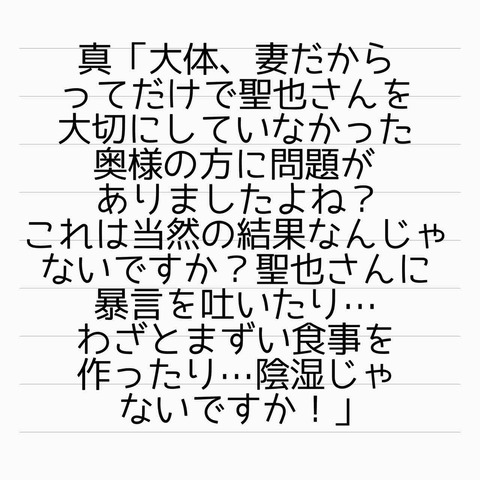 真「大体、妻だから
ってだけで聖也さんを
大切にしていなかった
奥様の方に問題が
ありましたよね？
これは当然の結果なんじゃ
ないですか？聖也さんに
暴言を吐いたり…
わざとまずい食事を
作ったり…陰湿じゃ
ないですか！」